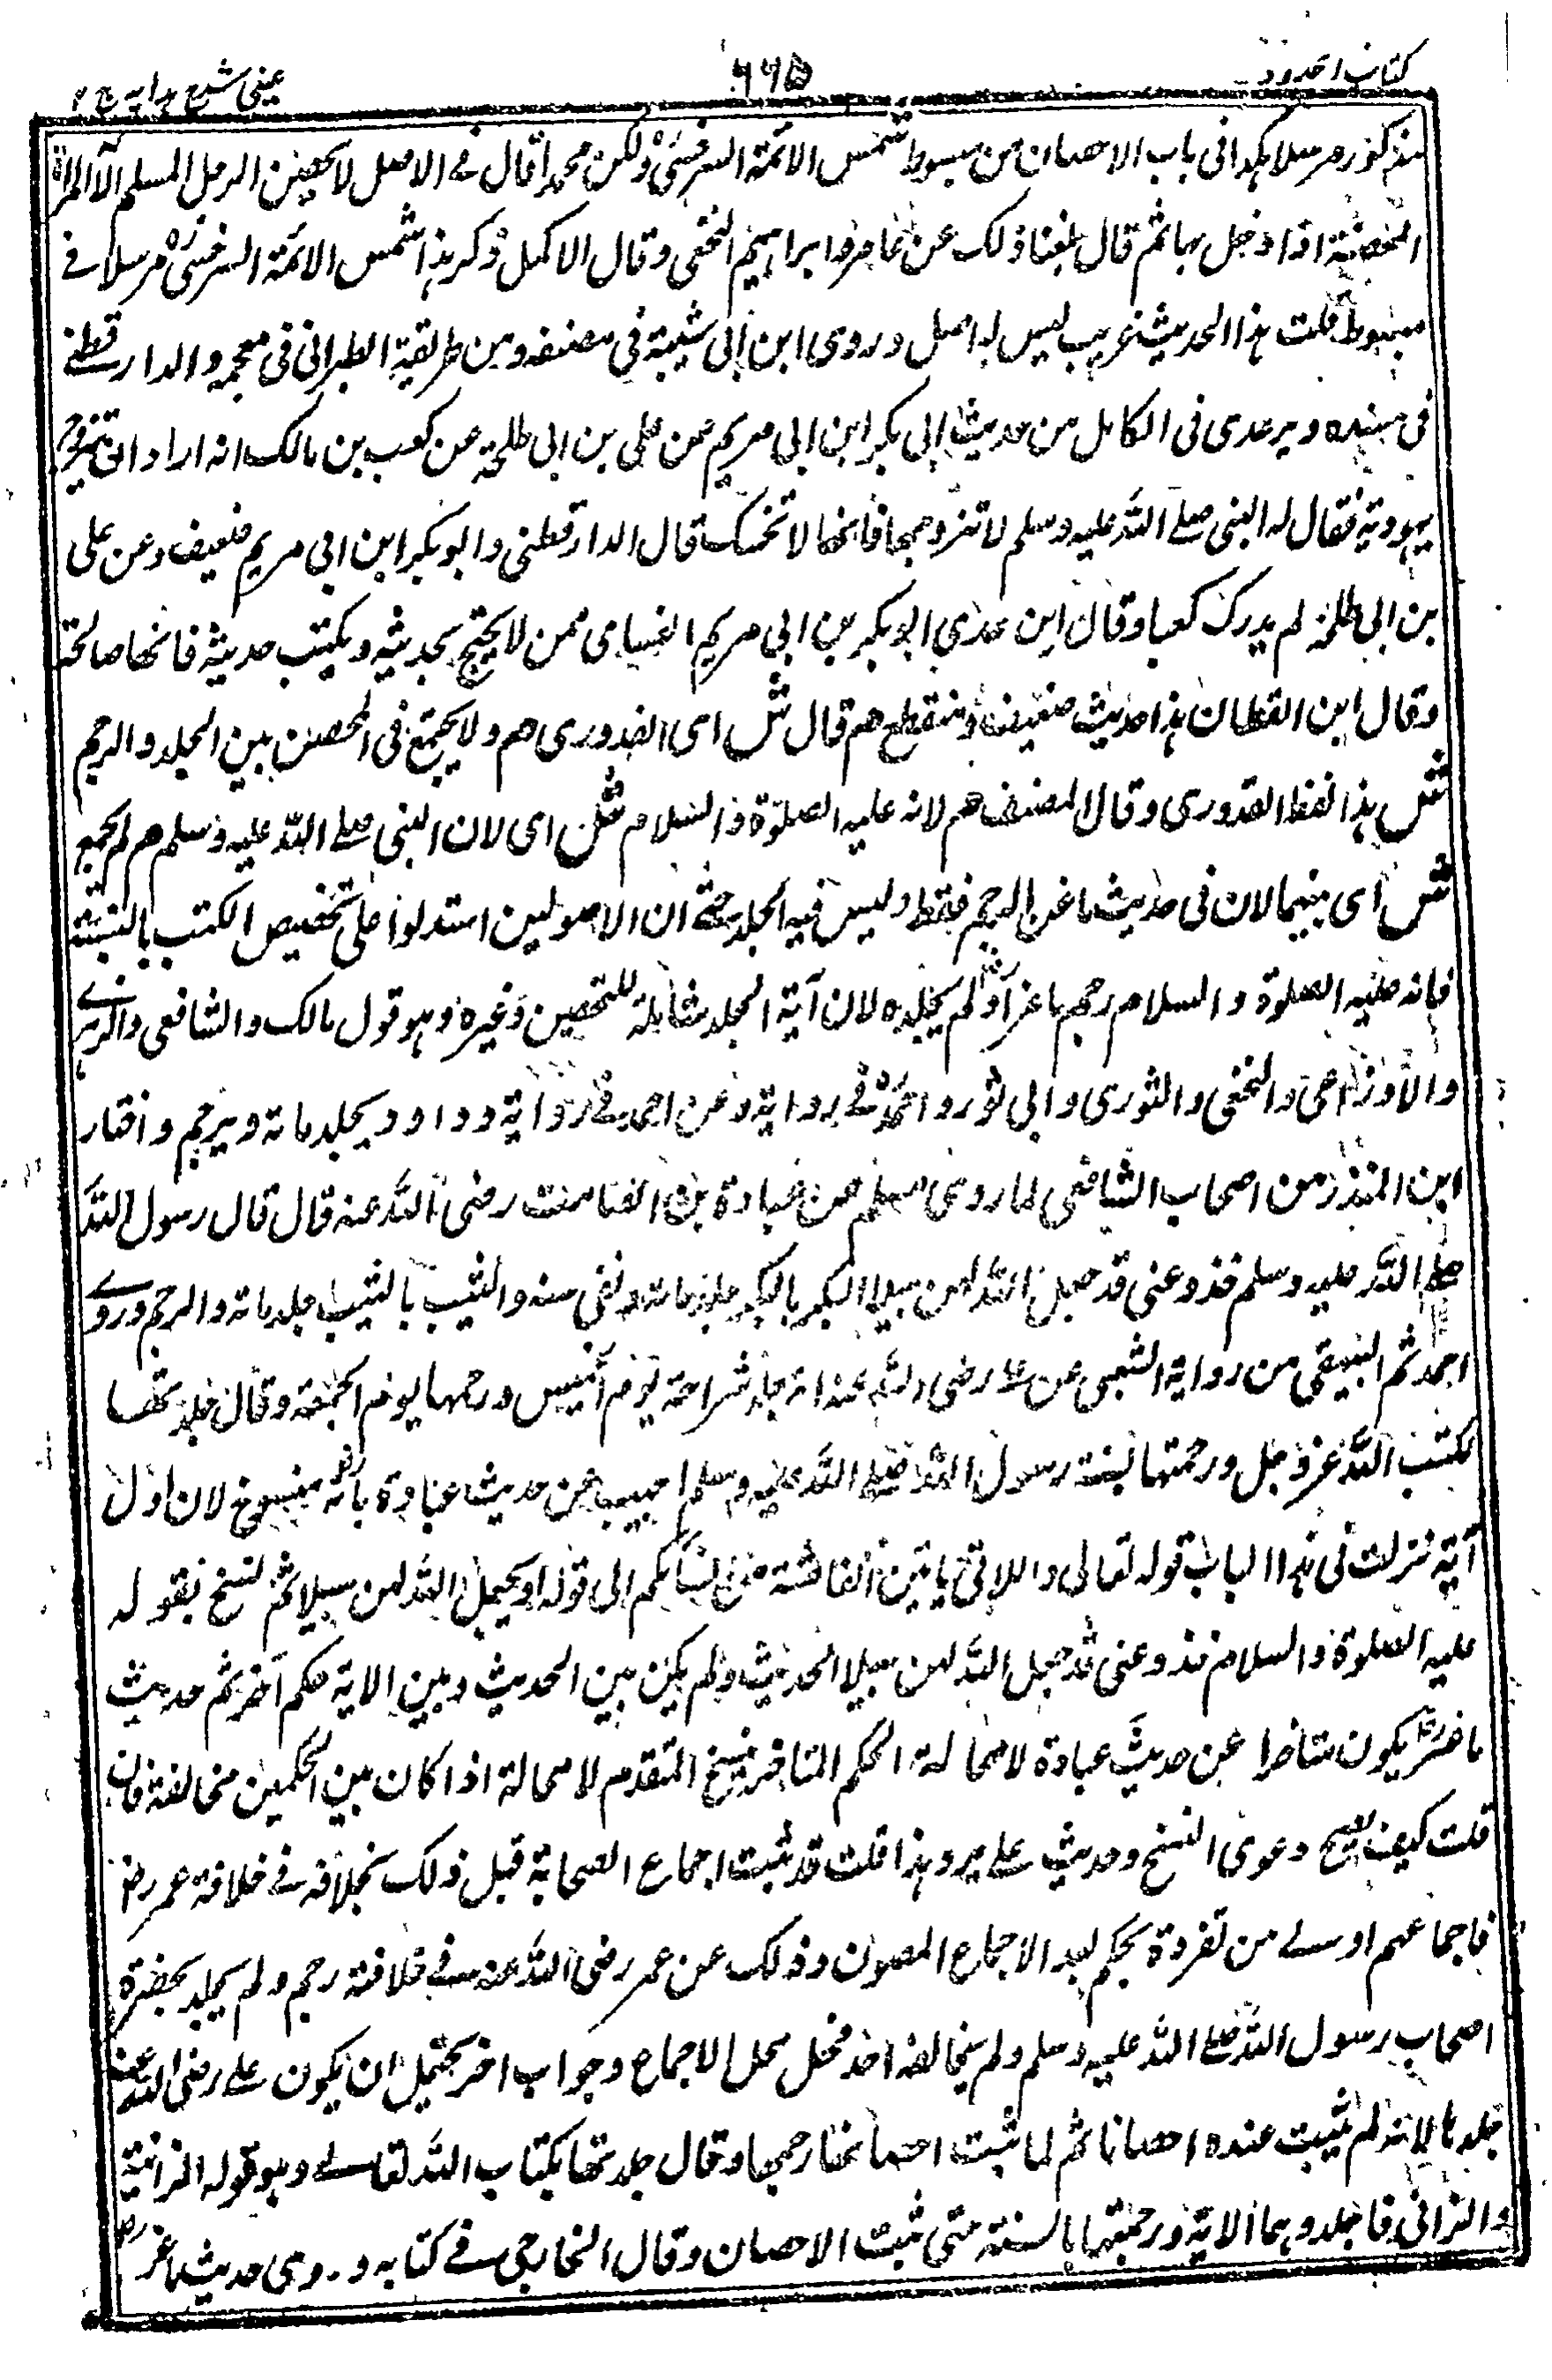 كتاب الحدود
٦٦٥
عینی شرح ہدایہ ج ٢
مذكور مرسلا ہكذا فى باب الاحصان من مبسوط شمس الائمة السرخسىؒ ولكن محمدا قال فے الاصل لا يحصن الرجل المسلم الا المراة
المحصنة اذا دخل بہا ثم قال بلغنا ذلك عن عامر وابراہيم النخعى وقال الاكمل ذكر ہذا شمس الائمة السرخسىؒ مرسلا فے
مبسوطہ قلت ہذا الحديث غريب ليس لہ اصل وروى ابن ابى شيبة فى مصنفہ ومن طريقة الطبرانى فى معجمہ والدارقطنے
فى سننہ وبر عدى فى الكامل من حديث ابى بكر ابن ابى مريم عن على بن ابى طلحة عن كعب بن مالك انہ اراد ان يتزوج
يہودية فقال لہ النبى صلے اللہ عليہ وسلم لا تتزوجہا فانہا لا تحصنك قال الدارقطنى وابوبكر ابن ابى مريم ضعيف وعن على
بن ابى طلحة لم يدرك كعبا وقال ابن عدى ابوبكر بن ابى مريم الغسانى ممن لا يحتج بحديثہ ويكتب حديثہ فانہا صالحة
وقال ابن القطان ہذا حديث ضعيف ومنقطع ھم قال ش اى القدورى ھم ولا يجتمع فى المحصن بين الجلد والرجم
ش ہذا لفظ القدورى وقال المصنف ھم لانہ عليہ الصلوة والسلام ش اى لان النبى صلے اللہ عليہ وسلم ھم لم يجمع
ش اى بينہما لان فى حديث ماعز الرجم فقط وليس فيہ الجلد حتے ان الاصوليين استدلوا على تخصيص الكتب بالسنة
فانہ عليہ الصلوة والسلام رجم ماعزا ولم يجلدہ لان آية الجلد شاملة للمحصن وغيرہ وہو قول مالك والشافعى والزہرے
والاوزاعى والنخعى والثورى وابى ثور واحمدؒ فے رواية وعن احمد فے رواية وداود يجلد مائة ويرجم واختار
ابن المنذر من اصحاب الشافعى لما روى مسلم عن عبادة بن الصامت رضى اللہ عنہ قال قال رسول اللہ
صلے اللہ عليہ وسلم خذوعنى قد جعل اللہ لہن سبيلا البكر بالبكر جلد مائة ونفى سنہ والثيب بالثيب جلد مائة والرجم وروے
احمد ثم البيہقى من رواية الشعبى عن علے رضى اللہ عنہ انہ جلد شراحة يوم الخميس ورجمہا يوم الجمعة وقال جلدتہا
بكتب اللہ عزوجل ورجمتہا بسنة رسول اللہ صلے اللہ عليہ وسلم اجيب عن حديث عبادة بانہ منسوخ لان اول
آية نزلت فى ہذا الباب قولہ تعالى واللاتى ياتين الفاحشة من نسائكم الى قولہ او يجعل اللہ لہن سبيلا ثم نسخ بقولہ
عليہ الصلوة والسلام خذوعنى قد جعل اللہ لہن سبيلا الحديث ولم يكن بين الحديث وبين الاية حكم آخر ثم حديث
ماعزؓ يكون متاخرا عن حديث عبادة لا محالة الحكم المتاخر ينسخ المتقدم لا محالة اذا كان بين الحكمين مخالفة فان
قلت كيف يصح دعوى النسخ وحديث علے يرد ہذا قلت قد ثبت اجماع الصحابة قبل ذلك بخلافہ فے خلافة عمر رضؓ
فاجماعہم اولے من تفردہ بحكم بعد الاجماع المصون وذلك عن عمر رضى اللہ عنہ فے خلافتہ رجم ولم يجلد بحضرة
اصحاب رسول اللہ صلے اللہ عليہ وسلم ولم يخالفہ احد فحل محل الاجماع وجواب اخر يحتمل ان يكون علے رضى اللہ عنہ
جلدہا لانہ لم يثبت عندہ احصانہا ثم لما ثبت احصانہا رجمہا وقال جلدتہا بكتاب اللہ تعالے وہو قولہ الزانية
والزانى فاجلدوہما الاية ورجمتہا بالسنة متى ثبت الاحصان وقال النحارجى فے كتابہ وروى حديث ماعزؓ